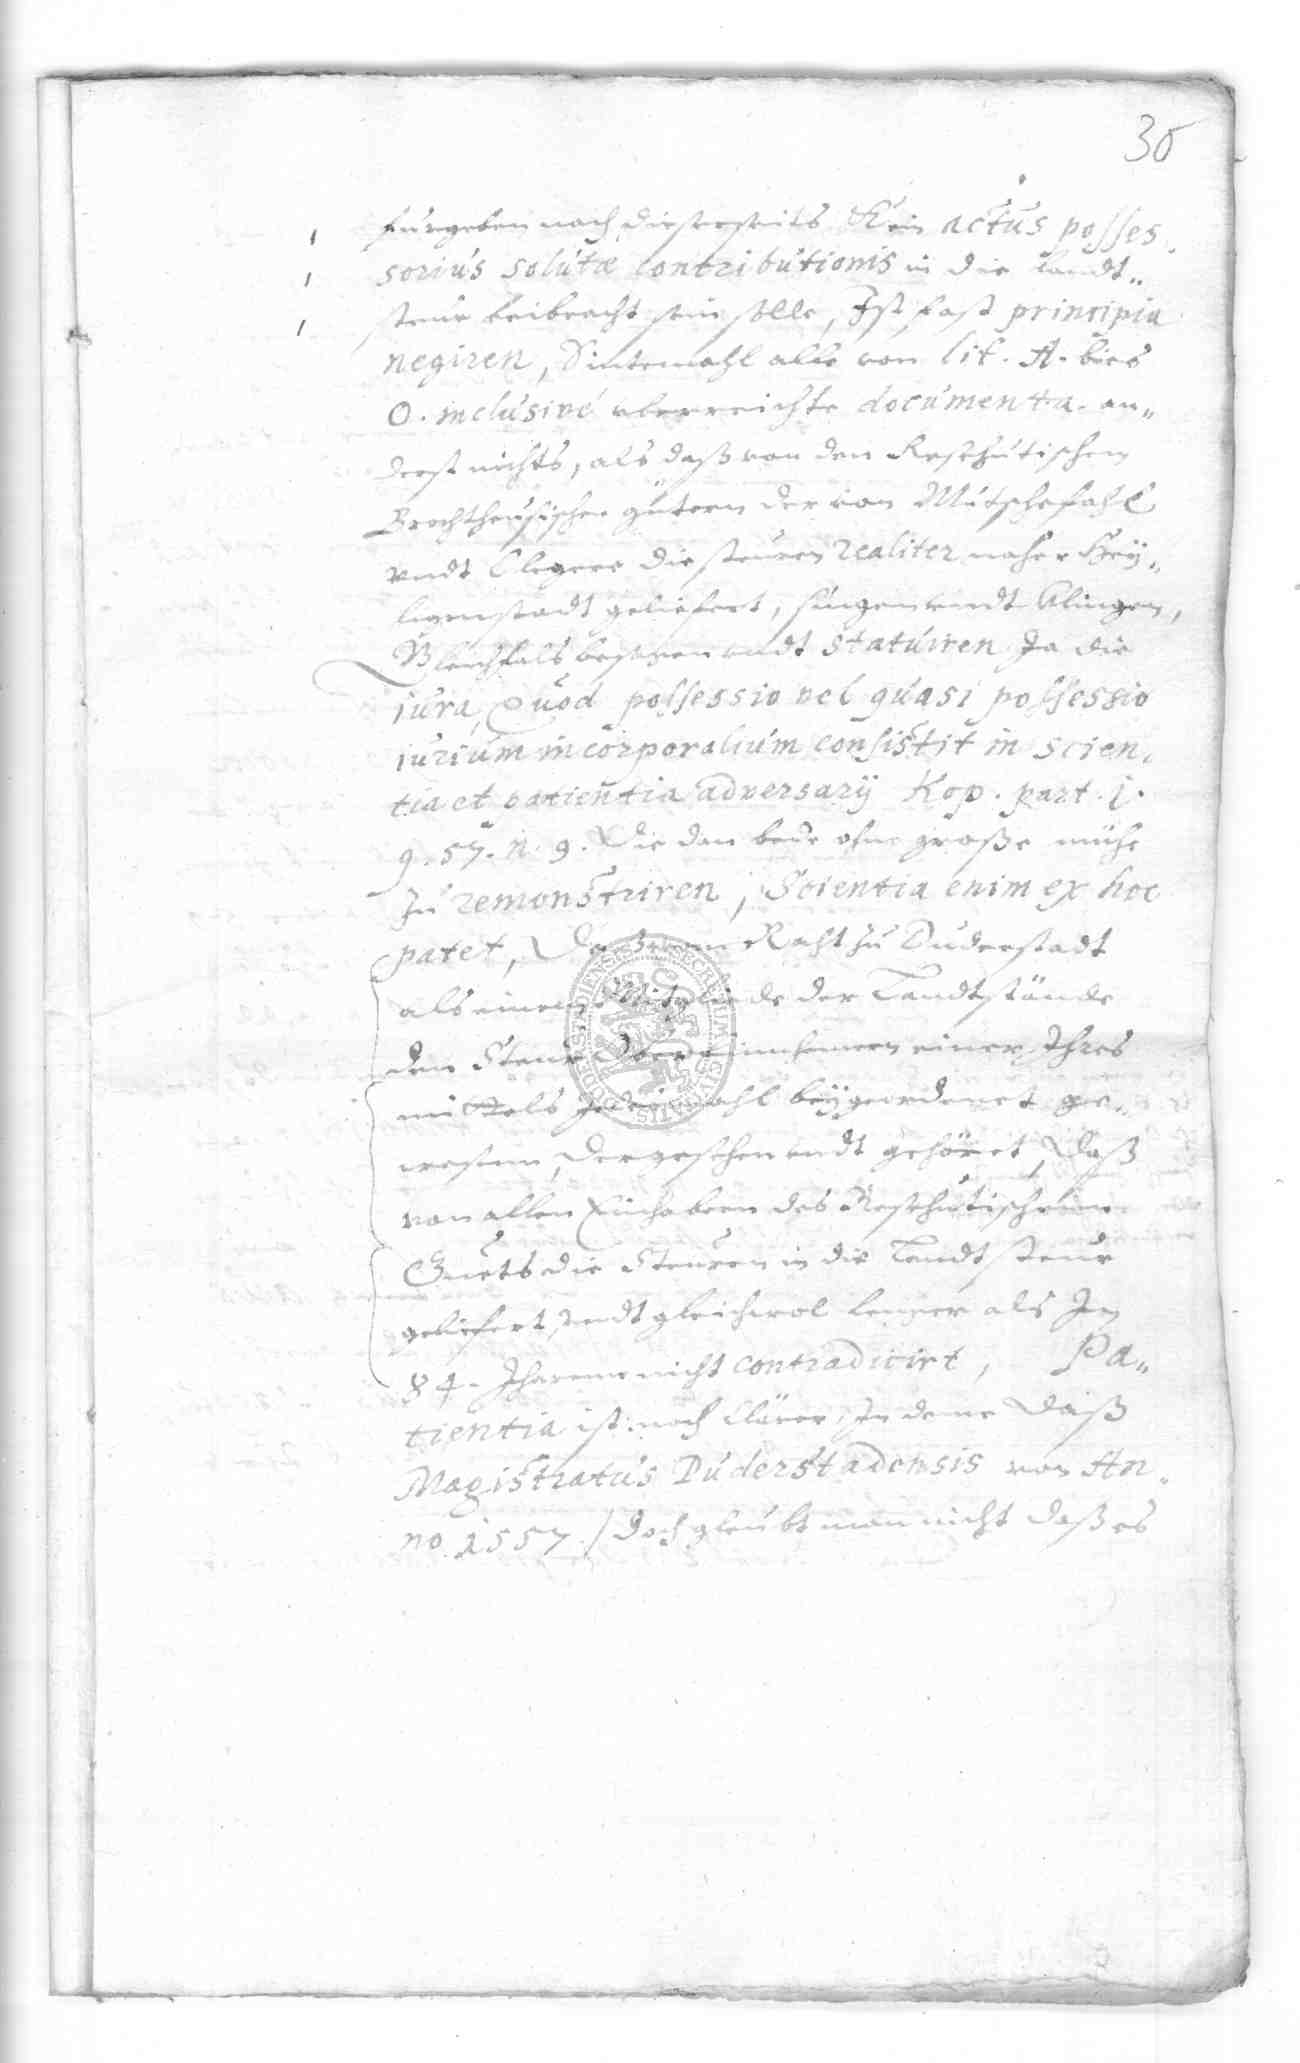 30
furgeben nach, dieserseits Kein actus posses„
sorius solutæ contributionis in die landt„
steur beibracht sein solle, Ist fast principia
negiren, Sintemahl alle von lit. A. bies
O. inclusivé uberreichte documenta. an„
derst nichts, als daß von den Resehutischen
Brochtheusischen gütern der von Mutschefahl
vndt Clegere die steuren realiter naher Hey„
ligenstadt geliefert, singen vndt klingen,
Gleichfals besagen vndt statuiren Ja die
iura, Quod possessio vel quasi possessio
iurium incorporalium consistit in scien„
tia et patientia adversarij Kop. part. 1.
q. 57. n. 9. Die dan bede ohne große mühe
Zu remonstriren, Scientia enim ex hoc
patet, Daß dem Raht zu Duderstadt
als einem Mitgliede der Landtstände
den Steur Ober Einnhemern einer Ihres
mittels Jedesmahl beygeordenet ge„
wesenn, der gesehen vndt gehöret, Daß
von allen Einhabern des Resehutischenn
Guets die Steuren in die Landt steur
geliefert, vndt gleichwol lenger als In
84. Jharenn nicht contradicirt, Pa„
tientia ist noch klärer, In deme Daß
Magistratus Duderstadensis von An„
no 1557 / Doch gleubt man nicht daß es
SECRETUM CIVITATIS DUDERSTADIENSIS